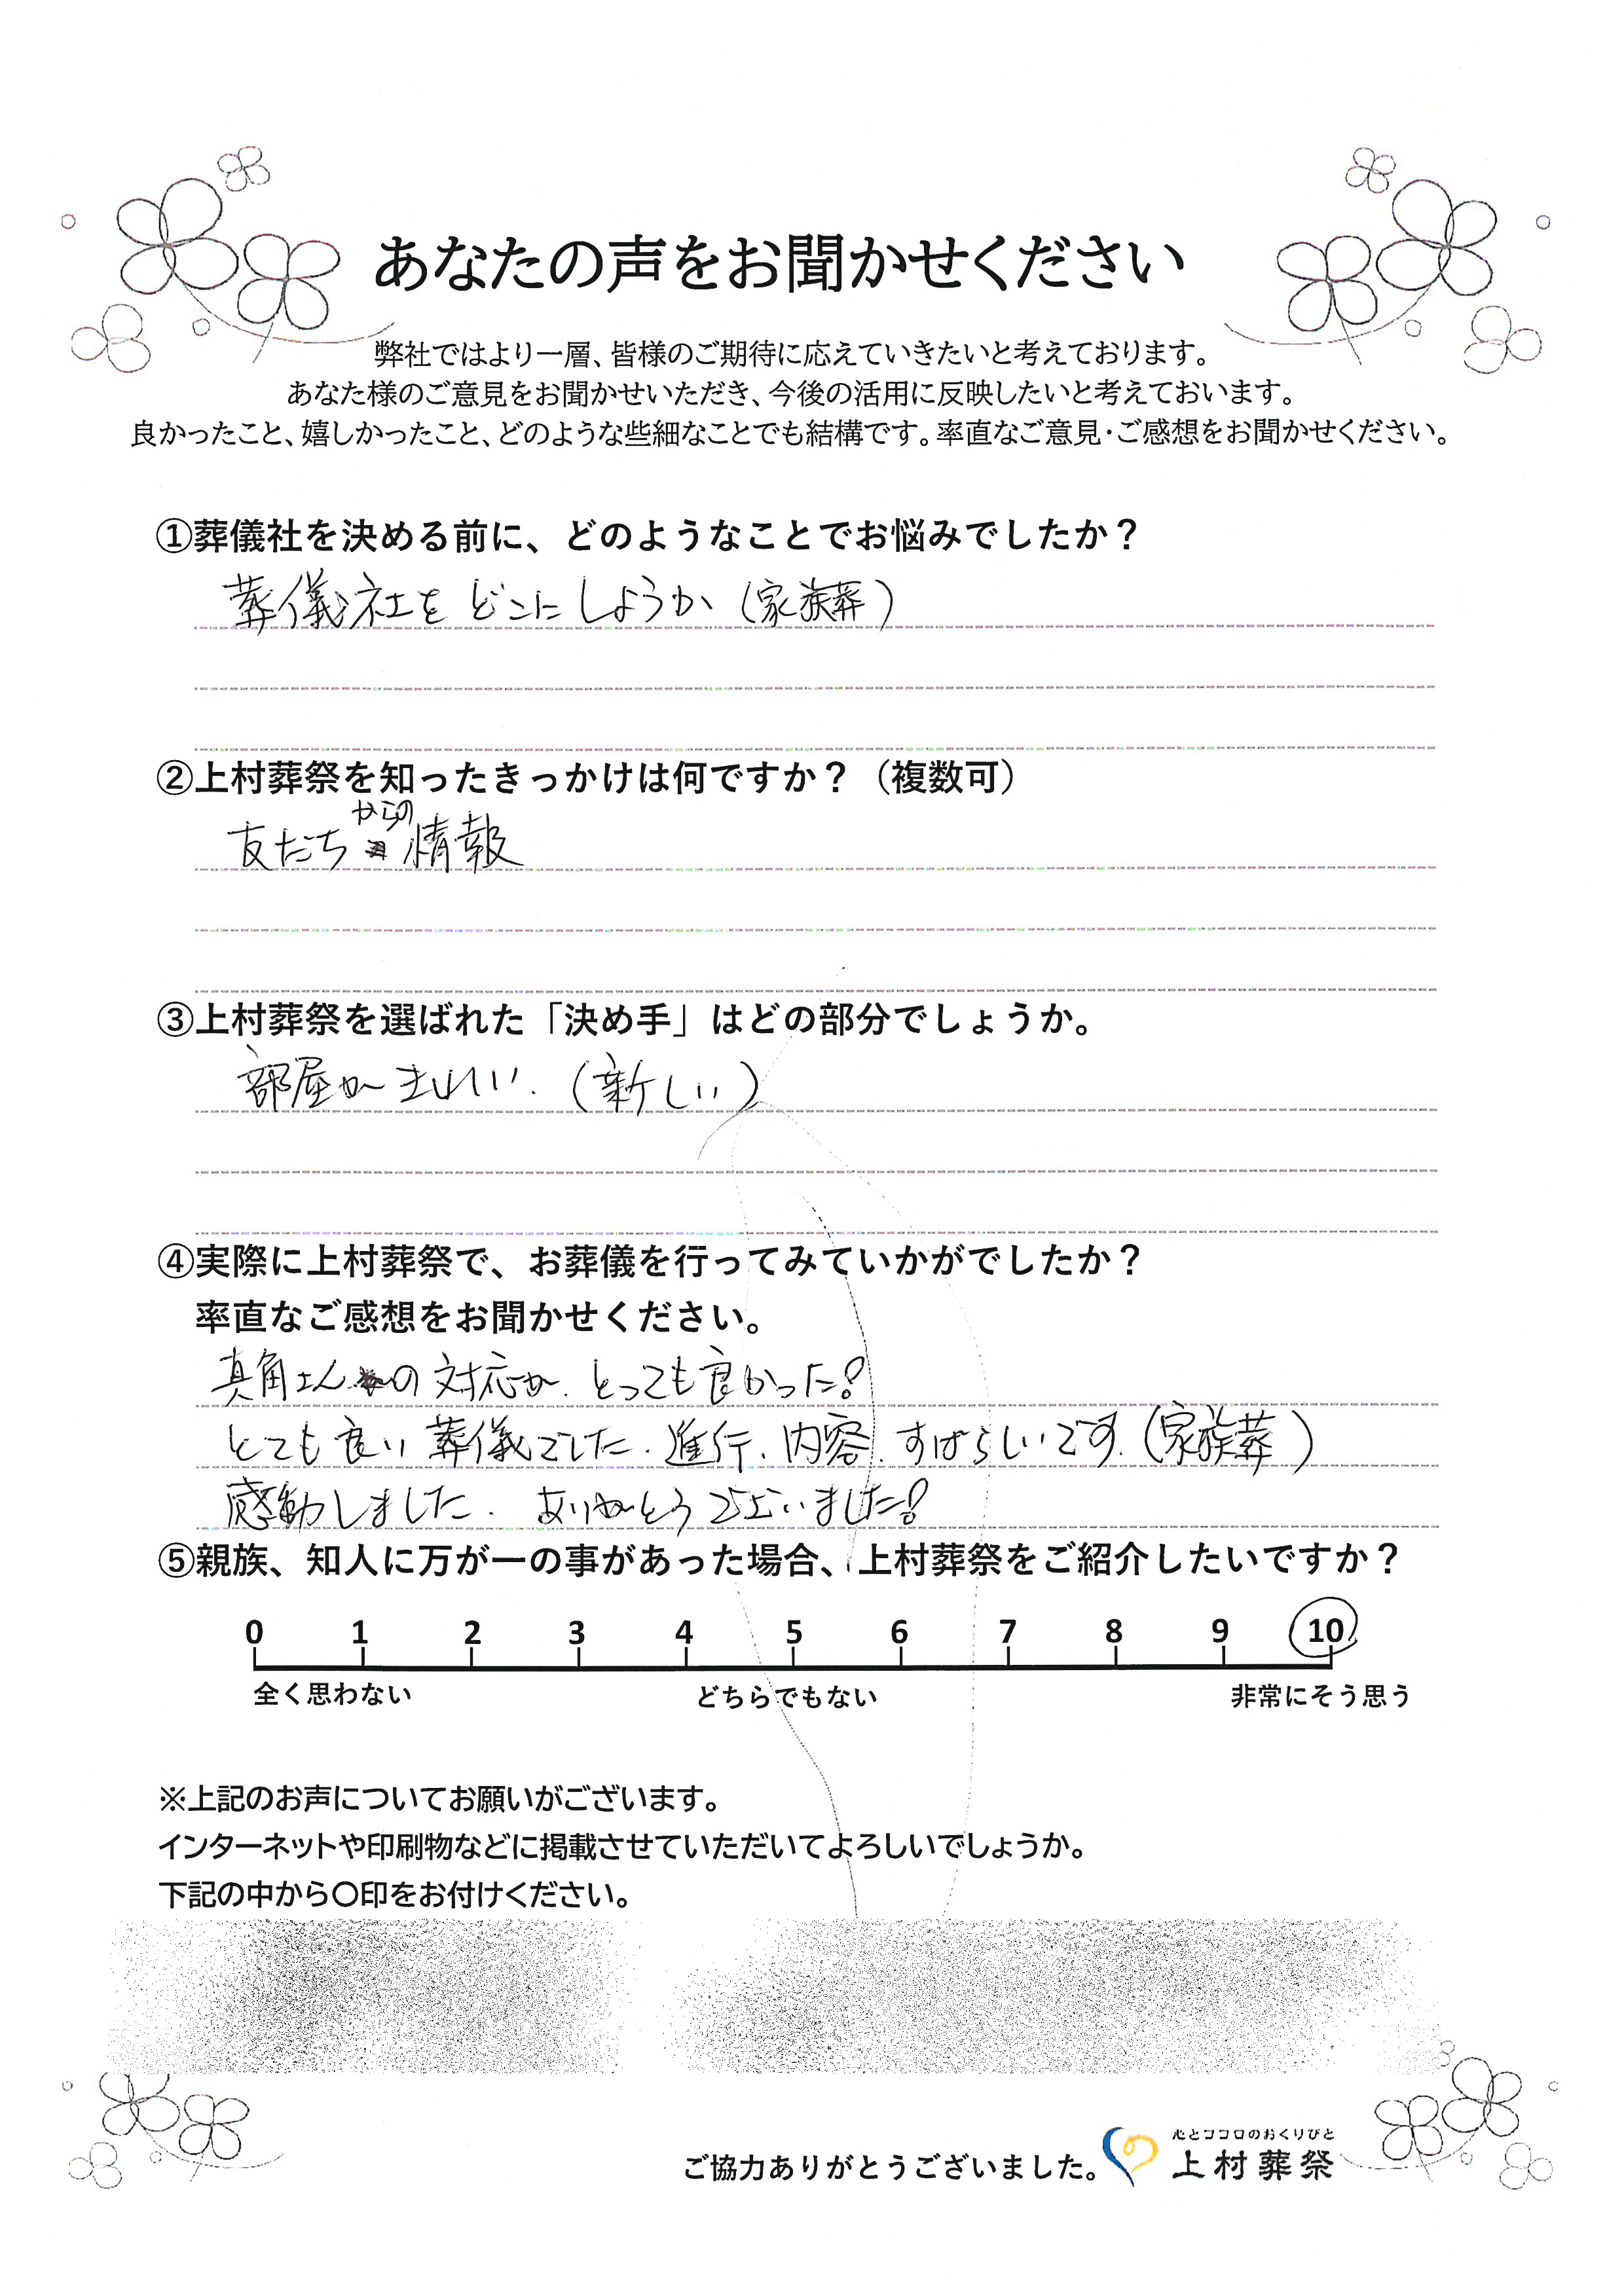 あなたの声をお聞かせください
弊社ではより一層、皆様のご期待に応えていきたいと考えております。
あなた様のご意見をお聞かせいただき、今後の活用に反映したいと考えておいます。
良かったこと、嬉しかったこと、どのような些細なことでも結構です。率直なご意見・ご感想をお聞かせください。
①葬儀社を決める前に、どのようなことでお悩みでしたか？
葬儀社をどこにしようか（家族葬）
②上村葬祭を知ったきっかけは何ですか？（複数可）
友だちからの情報
③上村葬祭を選ばれた「決め手」はどの部分でしょうか。
部屋がきれい．（新しい）
④実際に上村葬祭で、お葬儀を行ってみていかがでしたか？
率直なご感想をお聞かせください。
真角さんの対応が、とっても良かった！
とても良い葬儀でした．進行、内容、すばらしいです．（家族葬）
感動しました． ありがとうございました！
⑤親族、知人に万が一の事があった場合、上村葬祭をご紹介したいですか？
0 1 2 3 4 5 6 7 8 9 10
全く思わない どちらでもない 非常にそう思う
※上記のお声についてお願いがございます。
インターネットや印刷物などに掲載させていただいてよろしいでしょうか。
下記の中から〇印をお付けください。
心とココロのおくりびと
ご協力ありがとうございました。 上村葬祭